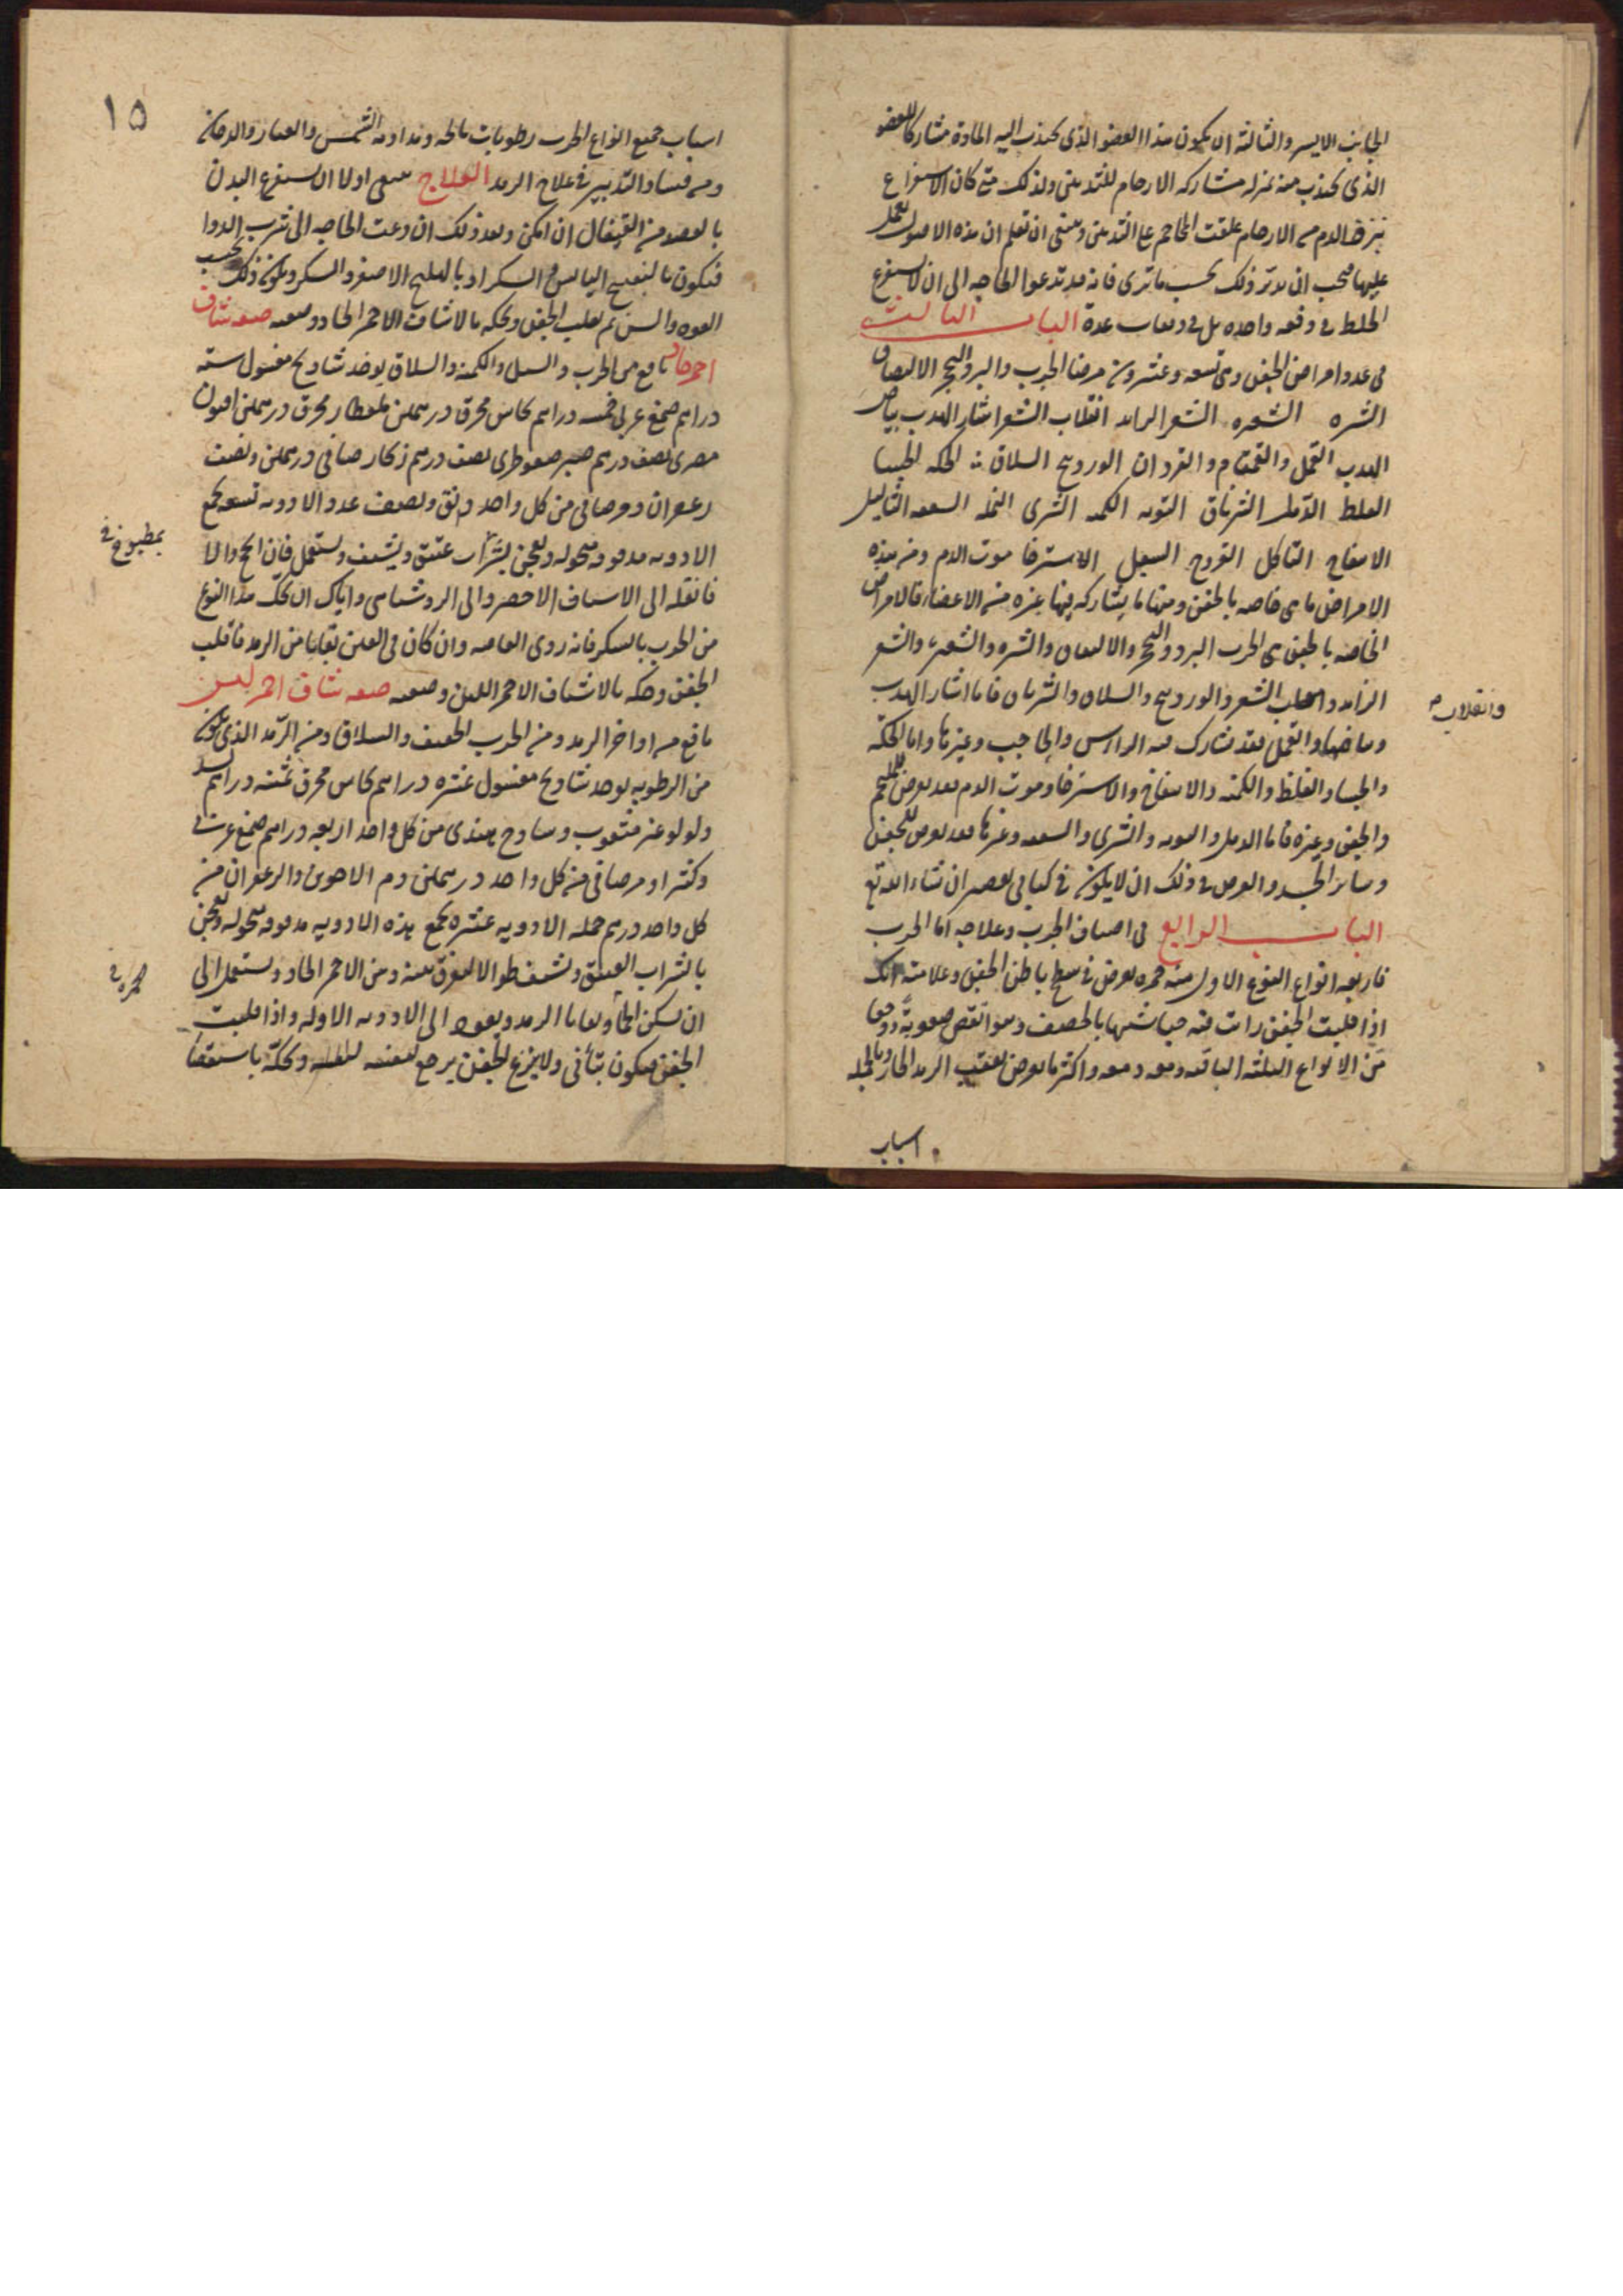 الجانب الايسر والثالثة ان يكون هذا العضو الذى تجذب اليه المادة مشاركا للعضو
الذى تجذب منه بمنزلة مشاركه الارحام للثديين ولذلك متى كان الاستفراغ
بنزف الدم من الارحام علقت المحاجم على الثديين وينبغى ان تعلم ان هذه الاصول تعمل
عليها فيجب ان تدبر ذلك بحسب ما ترى فانه قد تدعوا الحاجه الى ان لا تستفرغ
الخلط فى دفعه واحده بل فى دفعات عدة الباب الثالث
فى عدد امراض الجفن وهى تسعه وعشرون مرضا الجرب والبرد والتحجر الالتصاق
الشتره الشعيره الشعر الزايد انقلاب الشعر انتثار الهدب بياض
الهدب القمل والقمقام والقردان الوردينج السلاق الحكه الجسا
الغلظ الدمل الشرناق التوته الكمنه الشرى النمله السعفه الثاليل
الانتفاخ التاكل القروح السعل الاسترخا موت الدم ومن هذه
الامراض ما هى خاصه بالجفن ومنها ما يشاركه فيها غيره من الاعضاء فالامراض
الخاصه بالجفن هى الجرب البرد والتحجر والالتصاق والشتره والشعيره والشعر
الزايد وانقلاب الشعر والوردينج والسلاق والشرناق فاما انتثار الهدب
وبياضها والقمل فقد تشارك فيه الراس والحاجب وغيرها واما الحكة
والجسا والغلظ والكمنه والانتفاخ والاسترخا وموت الدم فقد يعرض للملتحم
والجفن وغيره فاما الدمل والتوته والشرى والسعفه وغيرها فقد يعرض للجفن
وساير الجسد والغرض فى ذلك ان لا يكون فى كتابى تقصير ان شاء الله تع
الباب الرابع فى اصناف الجرب وعلاجه اما الجرب
فاربعه انواع النوع الاول منه حمره تعرض فى سطح باطن الجفن وعلامته انك
اذا قلبت الجفن رايت فيه حبا شبيها بالحصف وهو انقص صعوبة ووجعا
من الانواع الثلثه الباقيه ومعه دمعه واكثر ما يعرض بعقب الرمد الحار وبالجمله
اسباب
وانقلاب
١٥
اسباب جميع انواع الجرب رطوبات مالحه ومداومه الشمس والغبار والدخان
ومن فساد التدبير فى علاج الرمد العلاج ينبغى اولا ان تستفرغ البدن
بالفصد من القيفال ان امكن وبعد ذلك ان دعت الحاجه الى شرب الدوا
فيكون بالبنفسج اليابس والسكر او بالهليلج الاصفر والسكر ويكون ذلك بحسب
القوه والسن ثم تقلب الجفن وتحكه بالاشياف الاحمر الحاد وصفته صفه شياف
احمر حاد نافع من الجرب والسبل والكمنه والسلاق يوخذ شادنج مغسول سته
دراهم صمغ عربى خمسه دراهم نحاس محرق درهمين قلقطار محرق درهمين افيون
مصرى نصف درهم صبر سقوطرى نصف درهم زنجار صافى درهمين ونصف
زعفران ومر صافى من كل واحد دانق ونصف عدد الادويه تسعه تجمع
الادويه مدقوقه منخوله وتعجن بشراب عتيق ويشيف ويستعمل فان انجح والا
فانقله الى الاشياف الاخضر والى الروشنايى واياك ان تحك هذا النوع
من الجرب بالسكر فانه ردى العاقبه وان كان فى العين بقايا من الرمد فاقلب
الجفن وحكه بالاشياف الاحمر اللين وصفته صفه شياف احمر لين
نافع من اواخر الرمد ومن الجرب الخفيف والسلاق ومن الرمد الذى يكون
من الرطوبه يوخذ شادنج مغسول عشره دراهم نحاس محرق ثمنيه دراهم بسد
ولولو غير مثقوب وساذج هندى من كل واحد اربعه دراهم صمغ عربى
وكثيرا ومر صافى من كل واحد درهمين دم الاخوين والزعفران من
كل واحد درهم جمله الادويه عشره تجمع هذه الادويه مدقوقه منخوله وتعجن
بالشراب العتيق وتشيف طوالا لتفرق بينه وبين الاحمر الحاد وتستعمل الى
ان تسكن الحمأ وبقايا الرمد ويعود الى الادويه الاوله واذا قلبت
الجفن فيكون بتأنى ولا ينزع الجفن يرجع لنفسه وتحكه باستقصا
بمطبوخ
الحمره